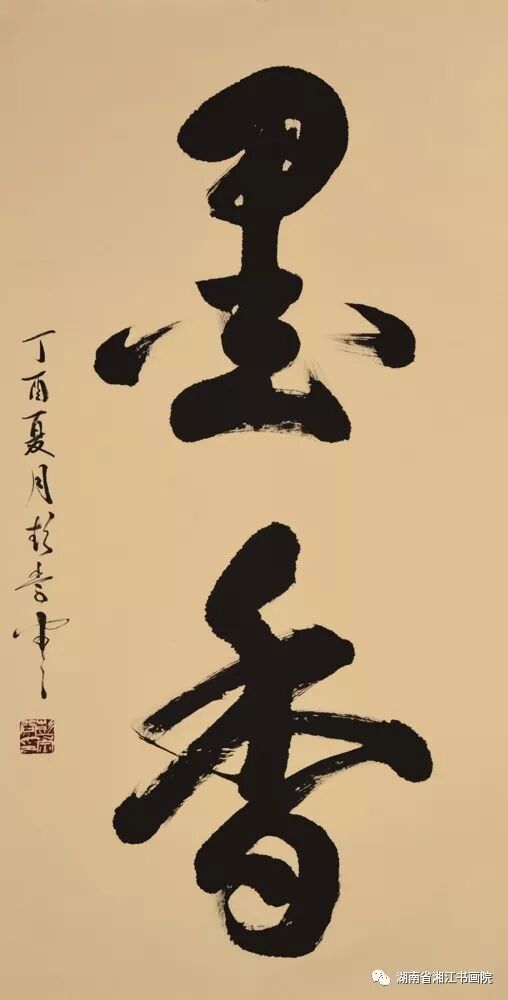 墨香
丁酉夏月彭书云
湖南省湘江书画院